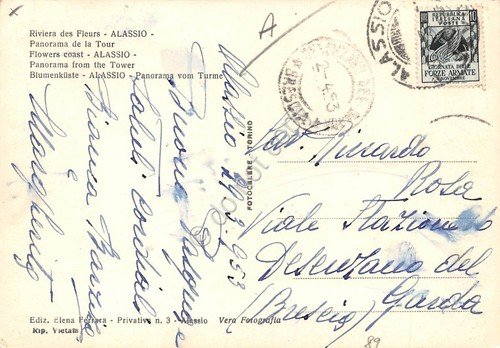 Riviera des Fleurs - ALASSIO -
Panorama de la Tour
Flowers coast - ALASSIO -
Panorama from the Tower
Blumenküste - ALASSIO - Panorama vom Turme
A
Alassio 29.3.953
Buona Pasqua e
saluti cordiali
Bianca e Maria
Margherita
FOTOCELERE - TORINO
ALASSIO
REPUBBLICA
ITALIANA
POSTE
GIORNATA DELLE
FORZE ARMATE
4 NOVEMBRE
Riccardo
Rosa
Viale Stazione
Desenzano del
Garda
(Brescia)
Ediz. Elena Ferrara - Privativa n. 3 - Alassio
Vera Fotografia
Rip. Vietata
89